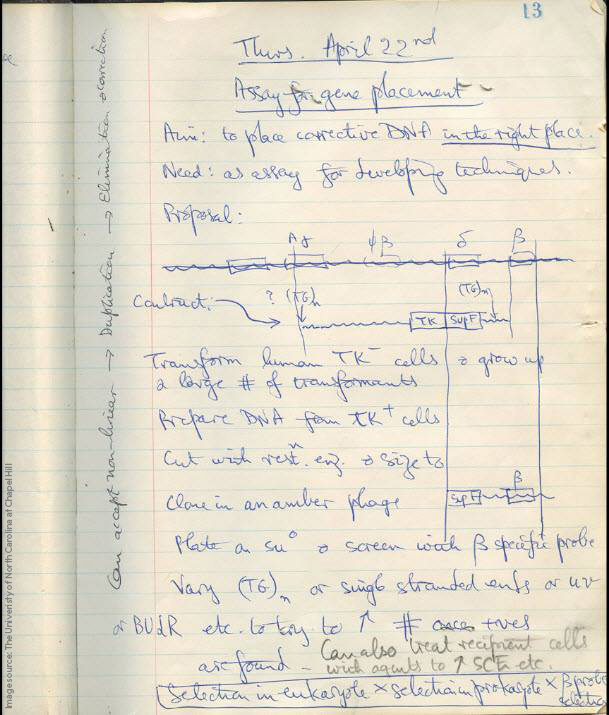 13
Thurs. April 22nd
Assay for gene placement
Aim: to place corrective DNA in the right place.
Need: as assay for developing techniques.
Proposal:
Aγ ψβ δ β
Contract: ? (TG)n (TG)n
TK SupF
Transform human TK- cells & grow up
a large # of transformants
Prepare DNA from TK+ cells
Cut with restn. enz. & size to
β
Clone in an amber phage SupF
Plate on su° & screen with β specific probe
Vary (TG)n or single stranded ends or uv
or BUdR etc. to try to ↑ # +ves
are found - Can also treat recipient cells
with agents to ↑ SCE etc.
Selection in eukaryote × selection in prokaryote × β probe
selection
Can accept non-linear → Duplication → Elimination & correction
Image source: The University of North Carolina at Chapel Hill